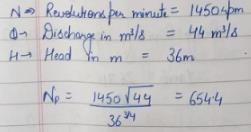 N ⇒ Revolutions per minute = 1450 rpm
Q → Discharge in m³/s = 44 m³/s
H → Head in m = 36m
Np = 1450√44 / 36^3/4 = 654.4